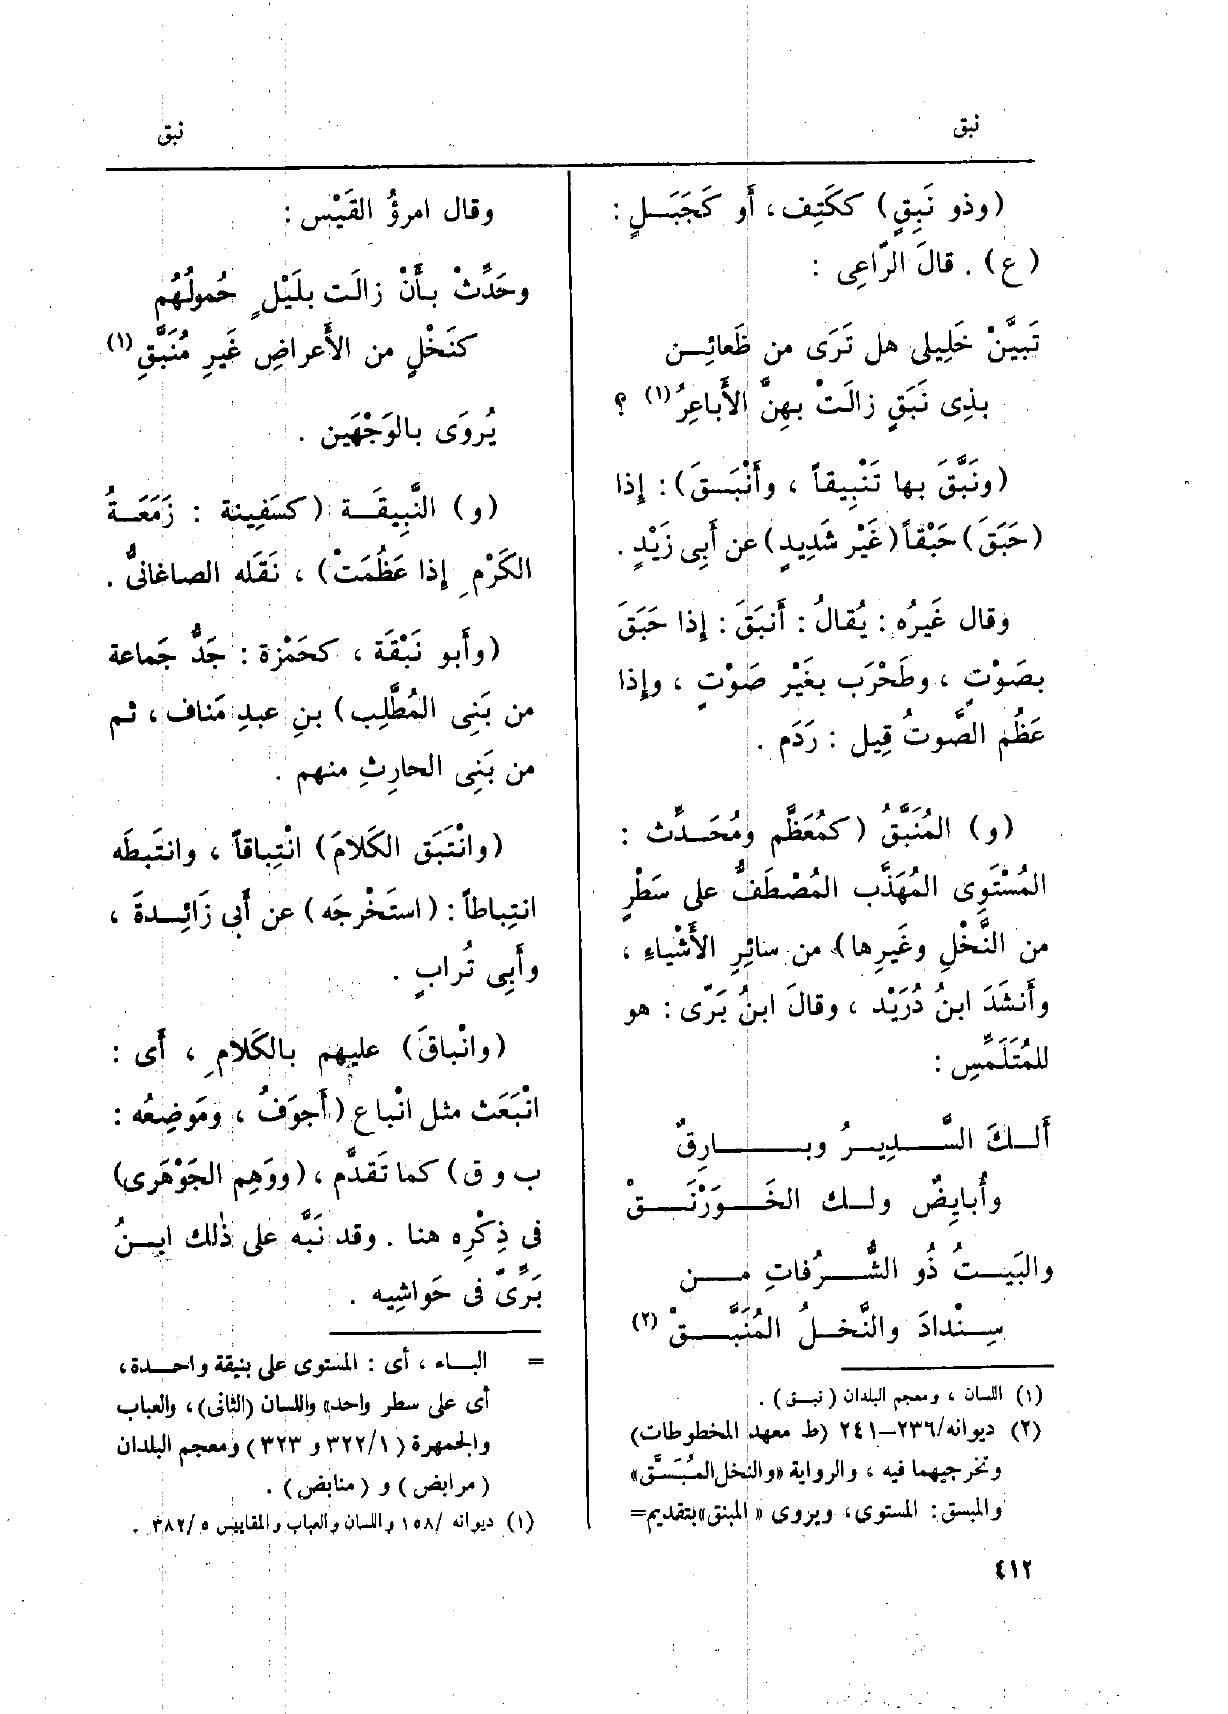 نبق
نبق
(وذو نَبِقٍ) ككَتِف، أَو كَجَبَـلٍ :
(ع) . قالَ الرَّاعِى :
تَبَيَّنْ خَلِيلى هل تَرَى من ظَعائِـن
بذِى نَبَقٍ زالَتْ بهِنَّ الأَباعِرُ (١) ؟
(ونَبَّقَ بها تَنْبِيقاً ، وأَنْبَـقَ) : إِذا
(حَبَقَ) حَبْقاً (غَيْر شَدِيدٍ) عن أَبِى زَيْدٍ .
وقال غَيرُه : يُقالُ : أَنبَقَ : إِذا حَبَقَ
بصَوْتٍ ، وطَحْرَب بغَيْر صَوْتٍ ، وإِذا
عَظُم الصَّوتُ قِيل : رَدَم .
(و) المُنَبَّقُ (كمُعَظَّم ومُحَـدِّث :
المُسْتَوِى المُهَذَّب المُصْطَفُّ على سَطْرٍ
من النَّخْلِ وغَيرِها) من سائِرِ الأَشْياءِ ،
وأَنشَدَ ابنُ دُرَيْد ، وقالَ ابنُ بَرّى : هو
للمُتَلَمِّسِ :
أَلـكَ السَّـدِيـرُ وبـــارِقٌ
وأُبايِضٌ ولـك الخَـوَرْنَـقْ
والبَيـتُ ذُو الشُّـرُفاتِ مـن
سِـنْدادَ والنَّخـلُ المُنَبَّـقْ (٢)
(١) اللسان ، ومعجم البلدان (نبق) .
(٢) ديوانه/٢٣٦–٢٤١ (ط معهد المخطوطات)
وتخرجيهما فيه ، والرواية «والنخل المُبَسَّق»
والمبسق : المستوى، ويروى « المبنق» بتقديم=
وقال امرؤُ القَيْس :
وحَدِّثْ بأَنْ زالَت بلَيْلٍ حُمولُهُم
كنَخْلٍ من الأَعراضِ غَيرِ مُنَبَّقِ (١)
يُروَى بالوَجْهَين .
(و) النَّبِيقَـة (كسَفِينة : زَمَعَـةُ
الكَرْمِ إِذا عَظُمَتْ) ، نَقَله الصاغانىُّ .
(وأَبو نَبْقَة ، كحَمْزة : جَدُّ جَماعة
من بَنِى المُطَّلِب) بنِ عبدِ مَناف ، ثم
من بَنِى الحارِثِ منهم .
(وانْتَبَق الكَلامَ) انْتِباقاً ، وانتَبطَه
انتِباطاً : (استَخْرجَه) عن أَبى زَائِـدةَ ،
وأَبِى تُرابٍ .
(وانْباقَ) عليهم بالكَلامِ ، أَى :
انْبَعَث مثل انْباع (أَجوَفُ ، ومَوضِعُه :
ب و ق) كما تَقدَّم ، (ووَهِم الجَوْهَرى)
فى ذِكْرِه هنا . وقد نَبَّه على ذٰلك ابـنُ
بَرِّىّ فى حَواشِيه .
= البـاء ، أى : المستوى على بنيقة واحـدة،
أى على سطر واحد» واللسان (الثانى) ، والعباب
والجمهرة (١/ ٣٢٢ و ٣٢٣) ومعجم البلدان
(مرابض) و (منابض) .
(١) ديوانه /١٥٨ واللسان والعباب والمقاييس ٥ /٣٨٢ .
٤١٢